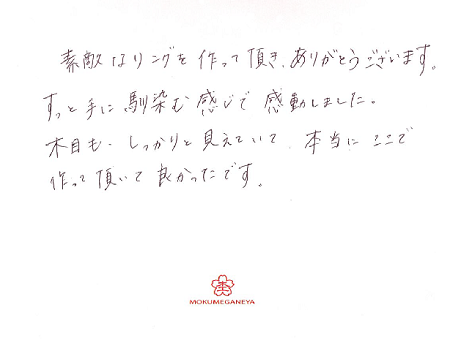 素敵なリングを作って頂き、ありがとうございます。
すっと手に馴染む感じで感動しました。
木目も、しっかりと見えていて、本当にここで
作って頂いて良かったです。
MOKUMEGANEYA